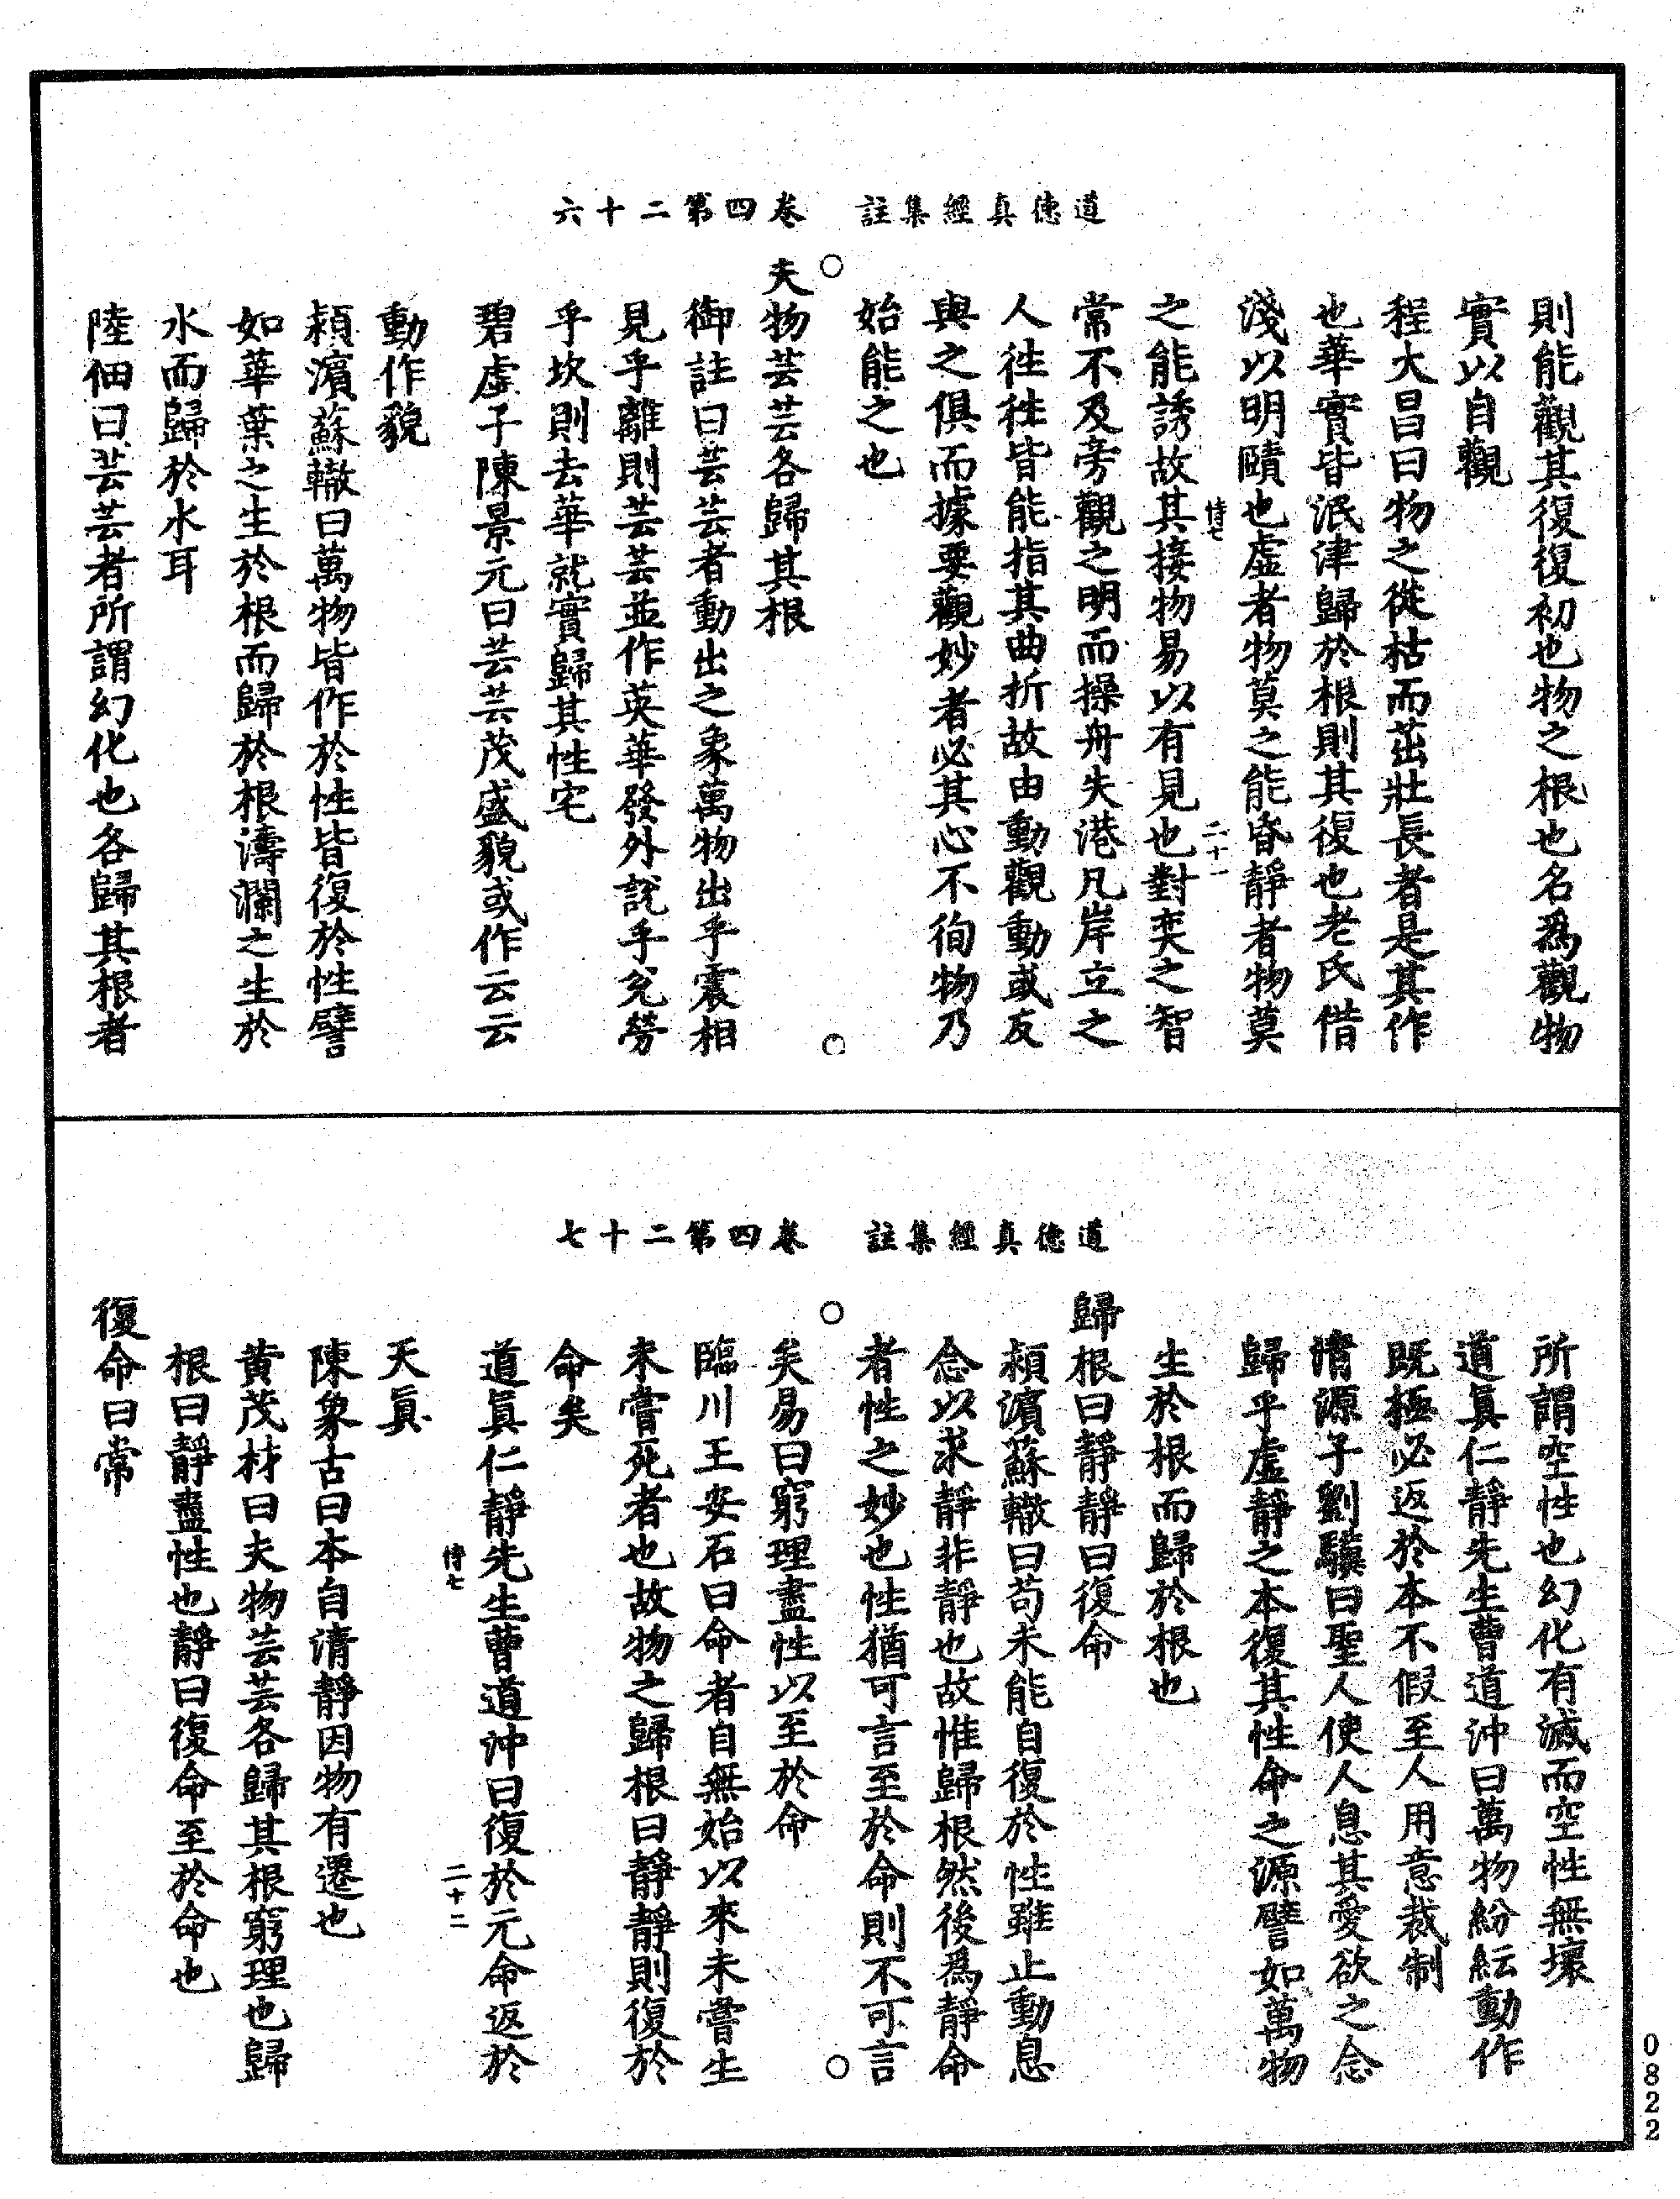 道德真經集註　卷四第二十六
則能觀其復復初也物之根也名為觀物
實以自觀
程大昌曰物之從枯而茁壯長者是其作
也華實皆泯津歸於根則其復也老氏借
淺以明賾也虛者物莫之能昏靜者物莫
悙七　二十一
之能誘故其接物易以有見也對奕之智
常不及旁觀之明而操舟失港凡岸立之
人徃徃皆能指其曲折故由動觀動或友
與之俱而據要觀妙者必其心不徇物乃
始能之也
夫物芸芸各歸其根
御註曰芸芸者動出之象萬物出乎震相
見乎離則芸芸並作英華發外說乎兊勞
乎坎則去華就實歸其性宅
碧虛子陳景元曰芸芸茂盛貌或作云云
動作貌
潁濱蘇轍曰萬物皆作於性皆復於性譬
如華葉之生於根而歸於根濤瀾之生於
水而歸於水耳
陸佃曰芸芸者所謂幻化也各歸其根者
道德真經集註　卷四第二十七
所謂空性也幻化有滅而空性無壞
道眞仁靜先生曹道沖曰萬物紛紜動作
既極必返於本不假至人用意裁制
清源子劉驥曰聖人使人息其愛欲之念
歸乎虛靜之本復其性命之源譬如萬物
生於根而歸於根也
歸根曰靜靜曰復命
潁濱蘇轍曰苟未能自復於性雖止動息
念以求靜非靜也故惟歸根然後爲靜命
者性之妙也性猶可言至於命則不可言
矣易曰窮理盡性以至於命
臨川王安石曰命者自無始以來未嘗生
未嘗死者也故物之歸根曰靜靜則復於
命矣
道眞仁靜先生曹道沖曰復於元命返於
悙七　二十二
天眞
陳象古曰本自清靜因物有遷也
黄茂材曰夫物芸芸各歸其根窮理也歸
根曰靜盡性也靜曰復命至於命也
復命曰常
0822